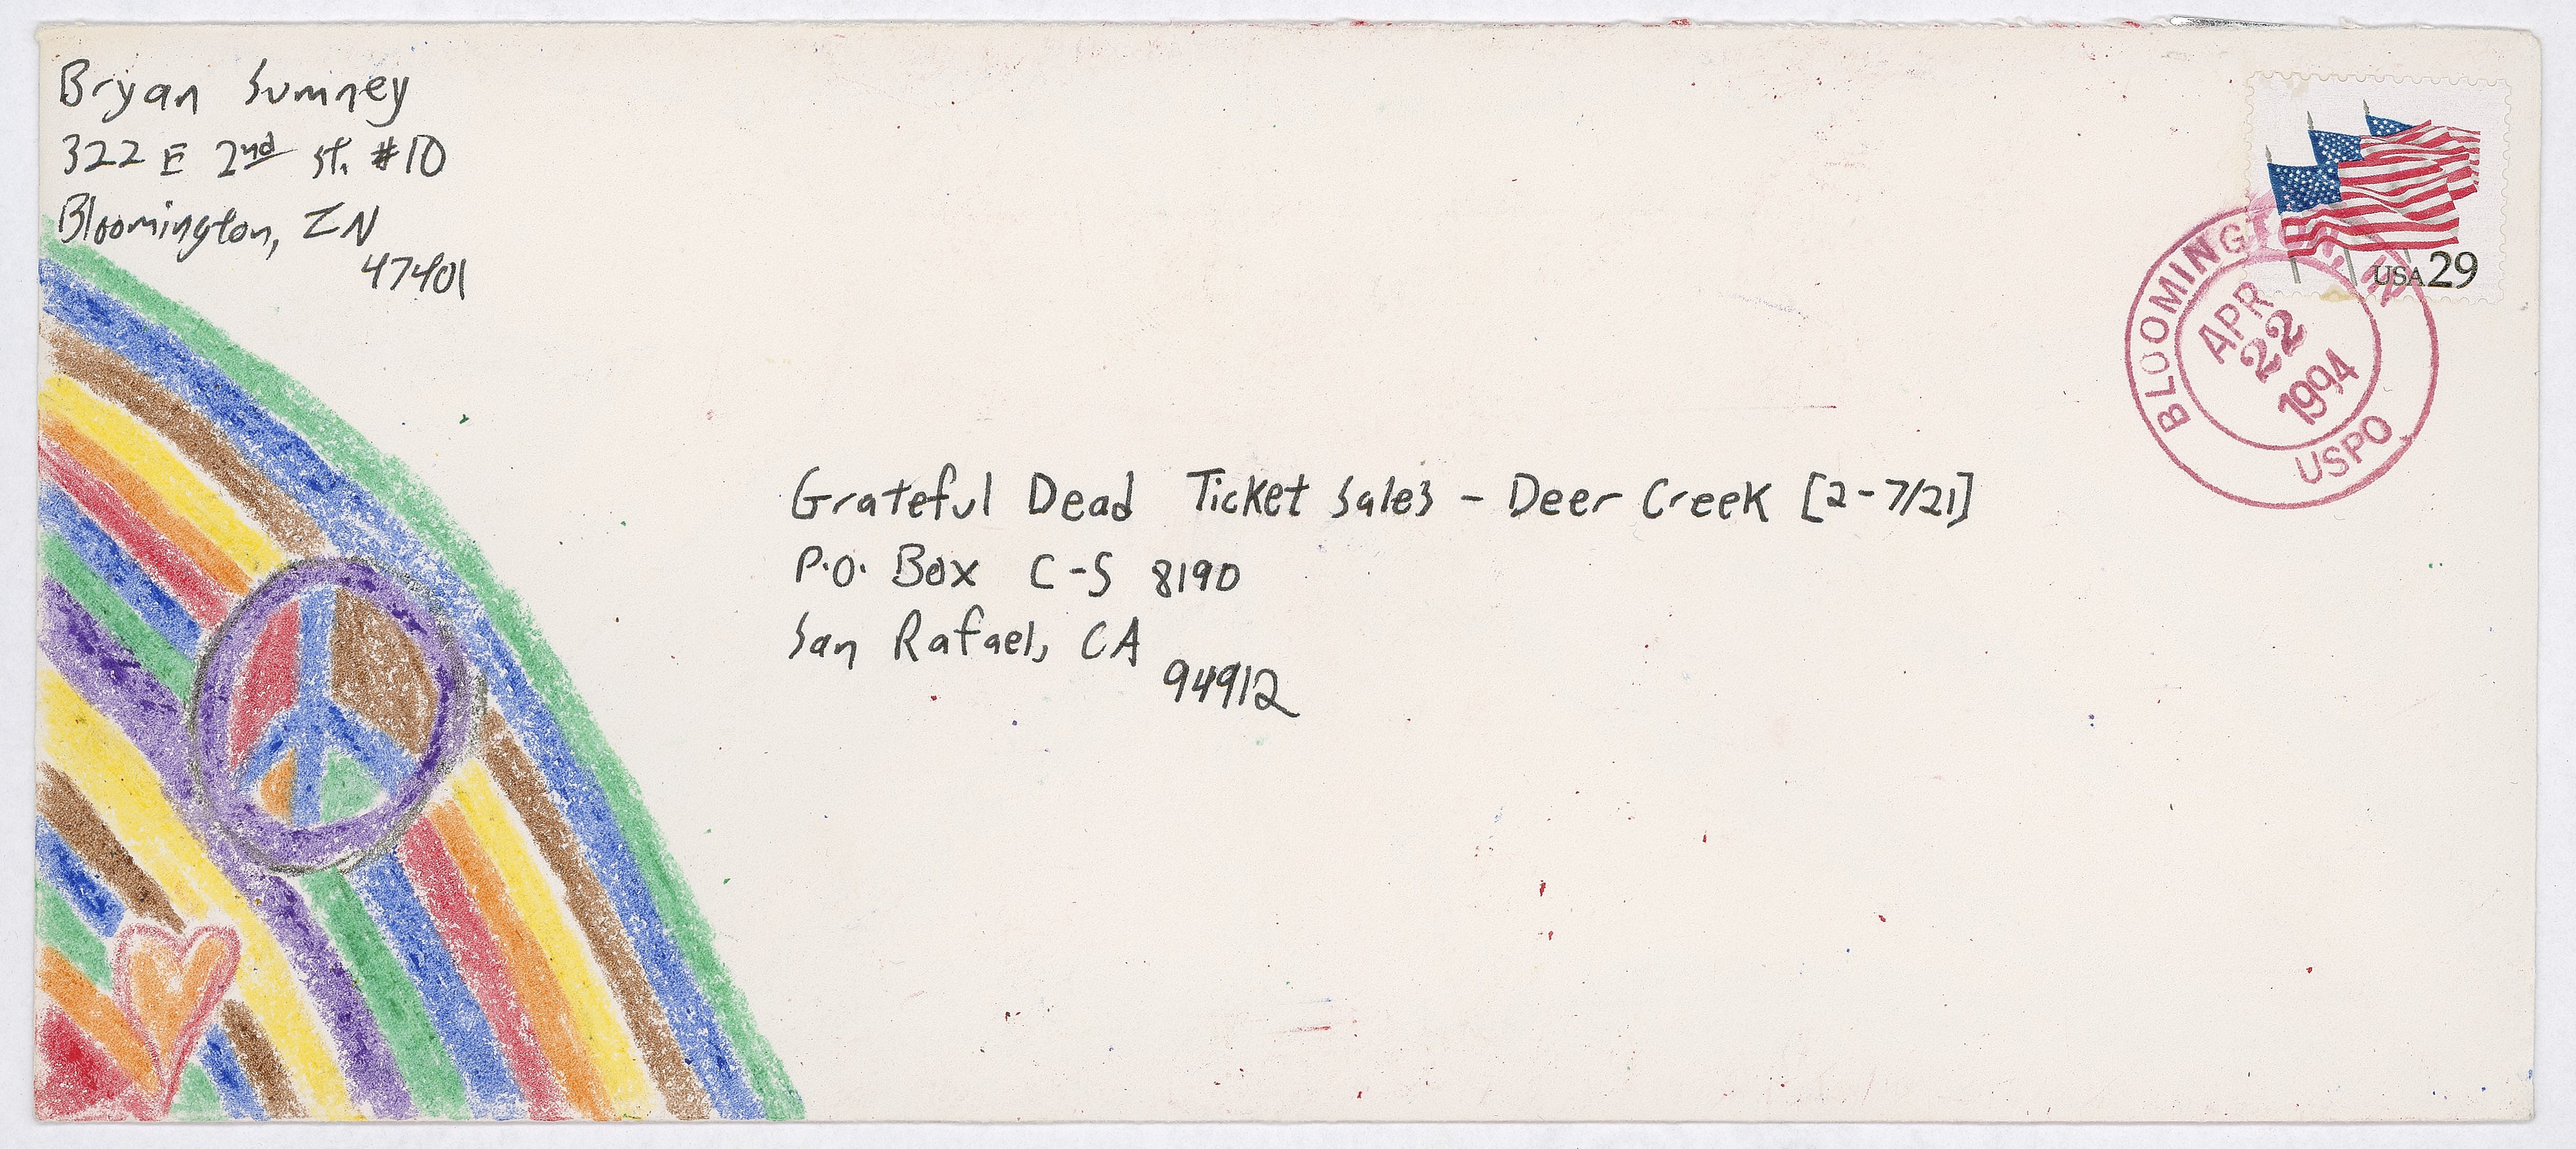 Bryan Sumney
322 E 2nd St. #10
Bloomington, IN
47401
USA 29
BLOOMINGTON, IN
APR
22
1994
USPO
Grateful Dead Ticket Sales - Deer Creek [2-7/21]
P.O. Box C-S 8190
San Rafael, CA
94912